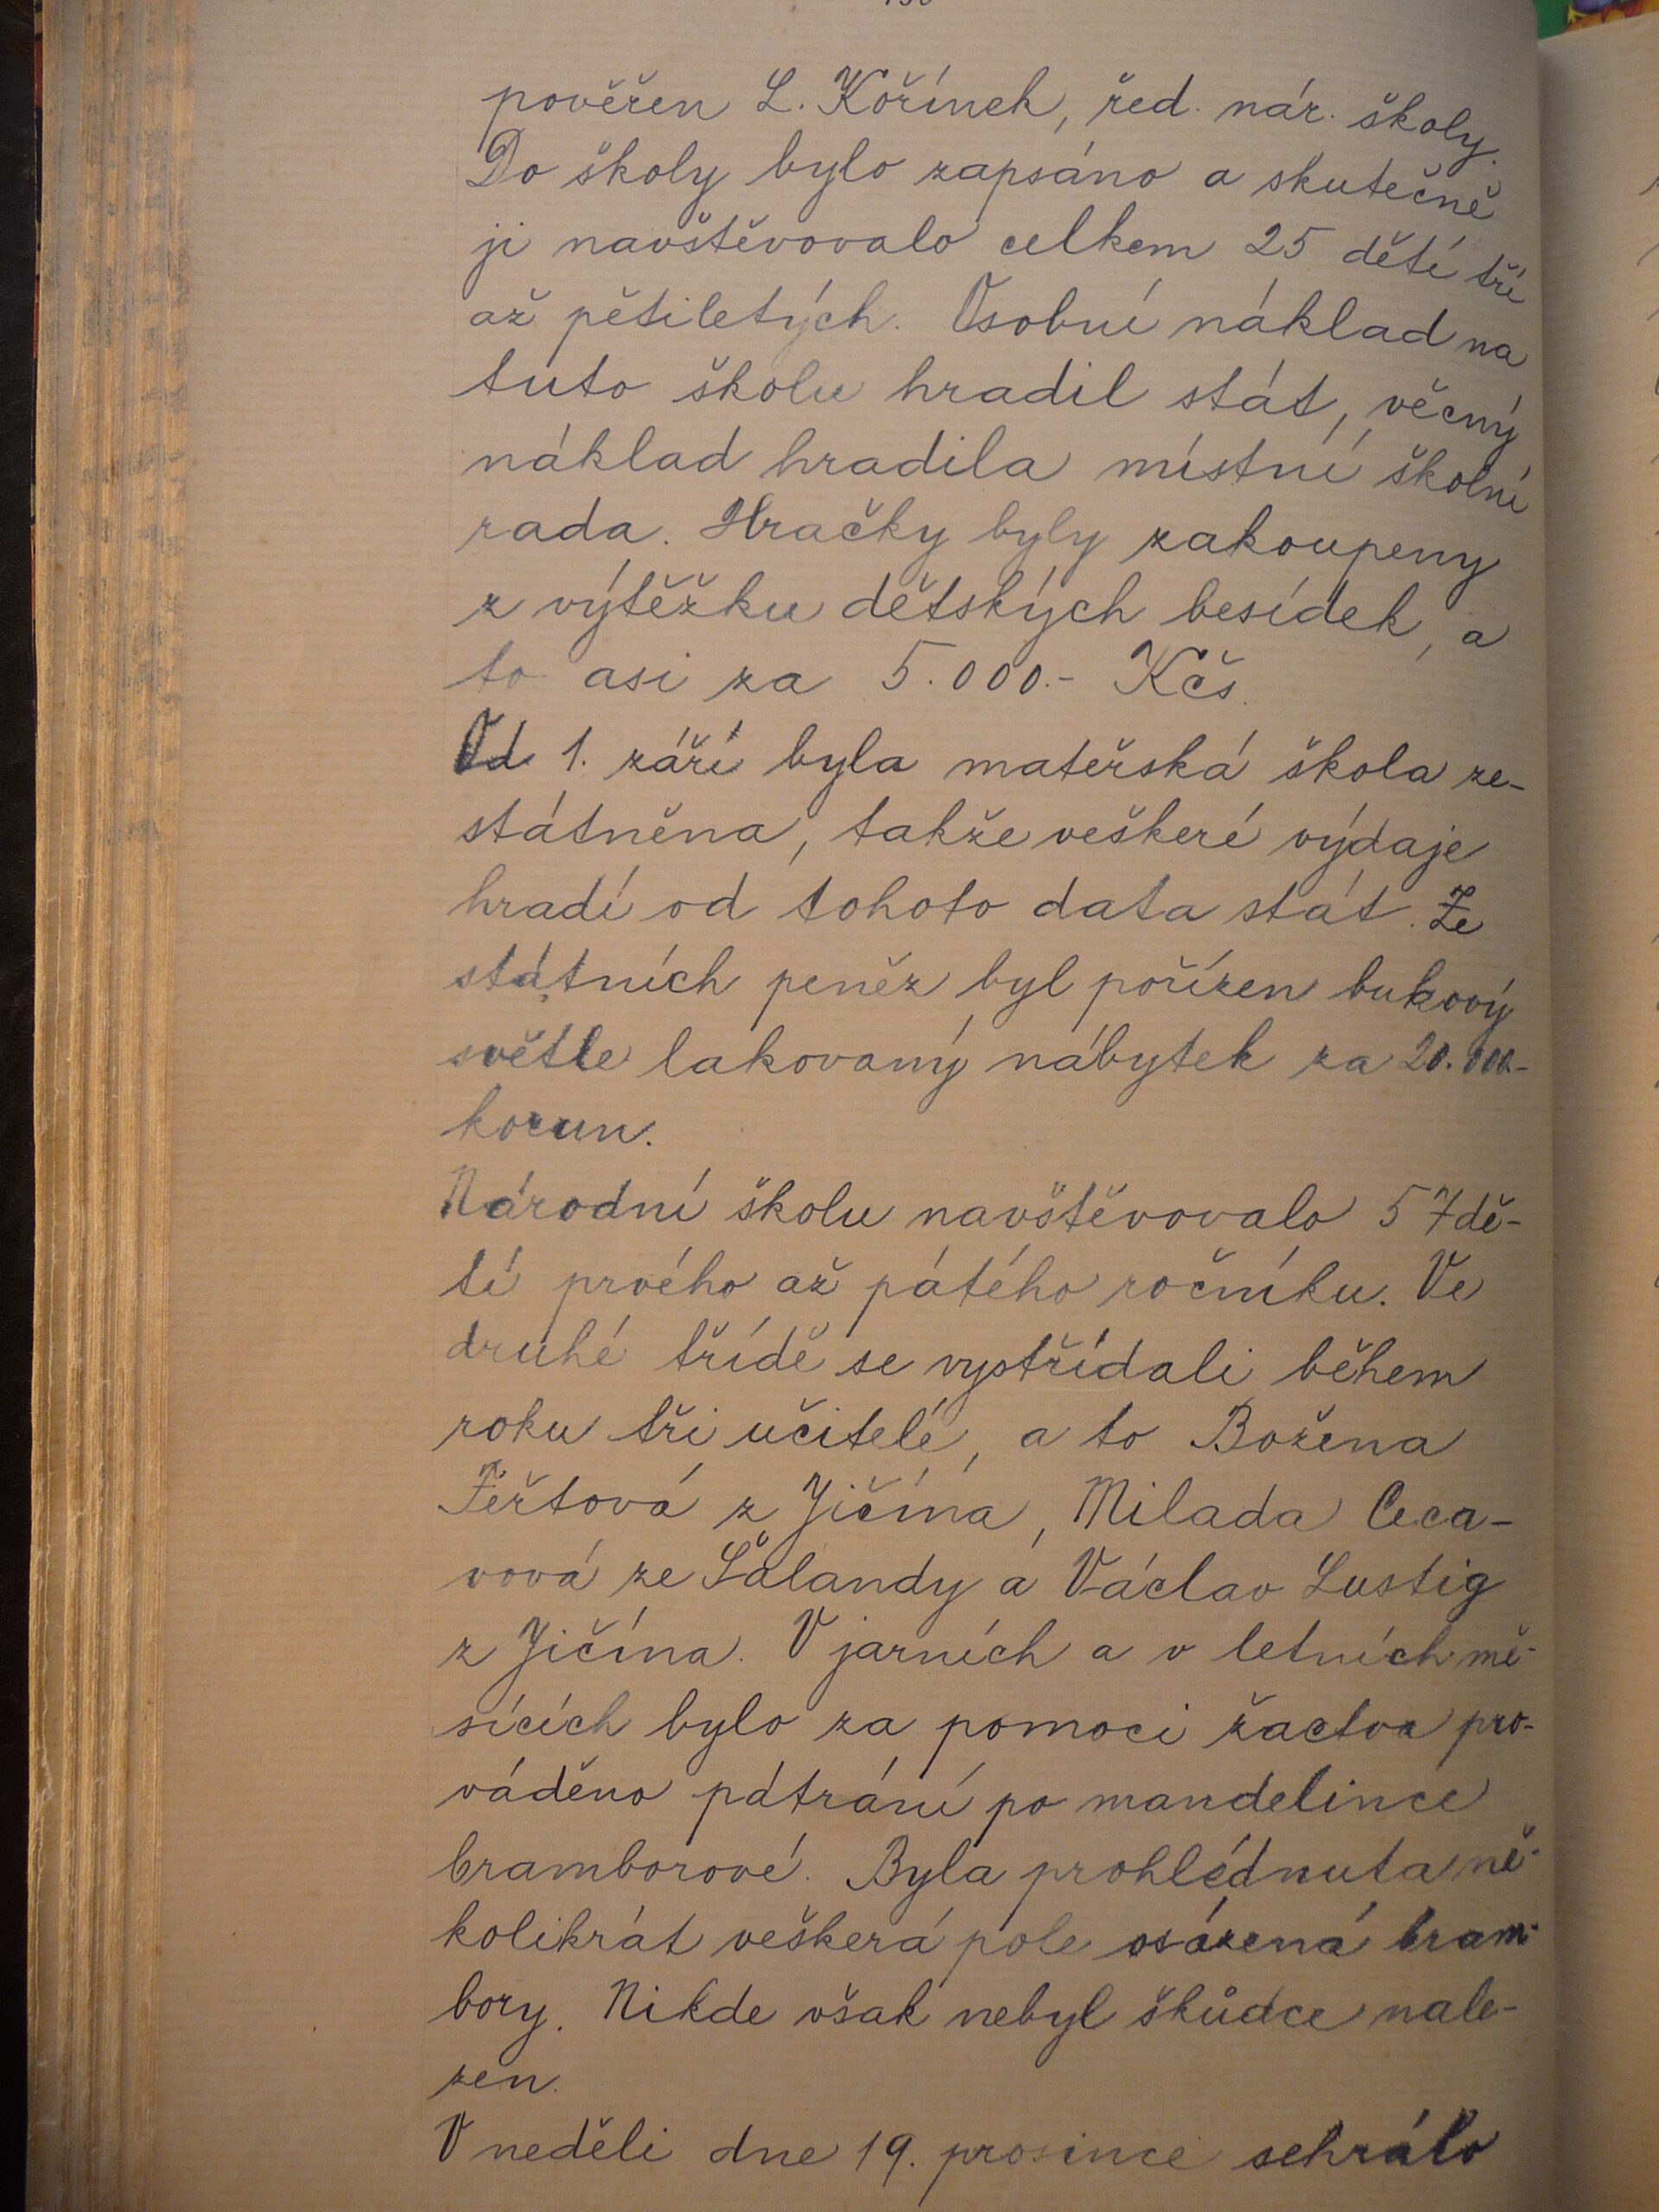 pověřen L. Kořínek, řed. nár. školy.
Do školy bylo zapsáno a skutečně
ji navštěvovalo celkem 25 dětí tří
až pětiletých. Osobní náklad na
tuto školu hradil stát, věcný
náklad hradila místní školní
rada. Hračky byly zakoupeny
z výtěžku dětských besídek, a
to asi za 5.000.- Kčs.
Od 1. září byla mateřská škola ze-
státněna, takže veškeré výdaje
hradí od tohoto data stát. Ze
státních peněz byl pořízen bukový
světle lakovaný nábytek za 20.000.-
korun.
Národní školu navštěvovalo 57 dě-
tí prvého až pátého ročníku. Ve
druhé třídě se vystřídali během
roku tři učitelé, a to Božena
Feřtová z Jičína, Milada Ceca-
vová ze Šalandy a Václav Lustig
z Jičína. V jarních a v letních mě-
sících bylo za pomoci žactva pro-
váděno pátrání po mandelince
bramborové. Byla prohlédnuta ně-
kolikrát veškerá pole osázená bram-
bory. Nikde však nebyl škůdce nale-
zen.
V neděli dne 19. prosince sehrálo